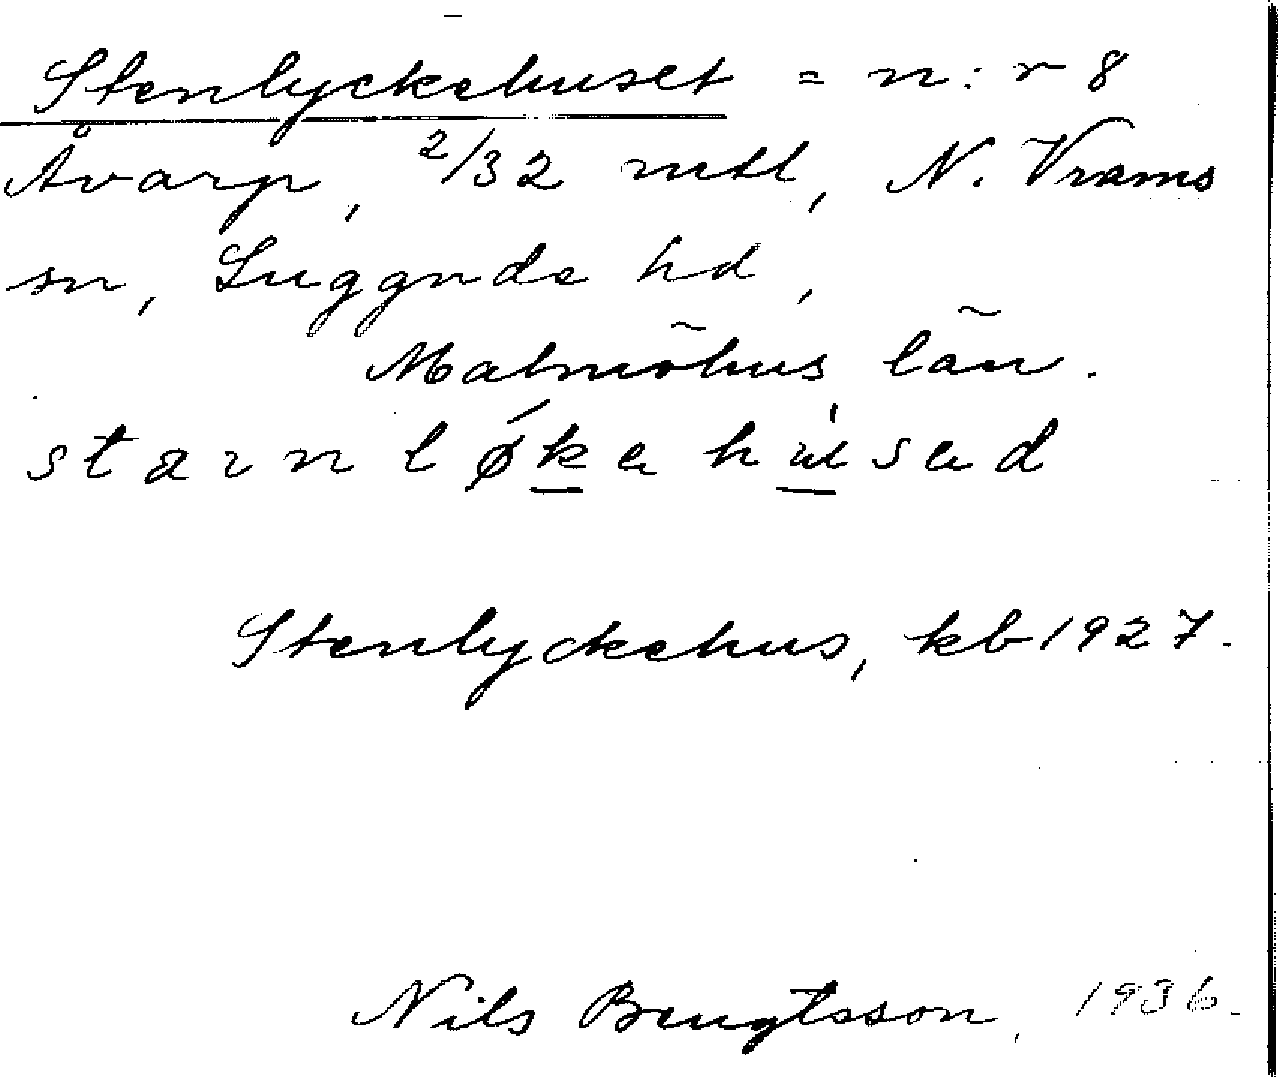 Stenlyckehuset = n:r 8
Åvarp, 2/32 mtl, N. Vrams
sn, Luggude hd,
Malmöhus län.
stærnløkahusad
Stenlyckehus, kb 1927.
Nils Bengtsson, 1936.